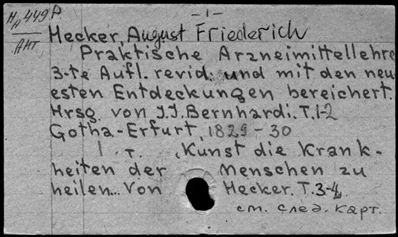 - 1 -
Hecker, August Friederich
Praktische Arzneimittellehre
3-te Aufl. revid. und mit den neu
esten Entdeckungen bereichert.
Hrsg. von J.J. Bernhardi. T.1-2
Gotha-Erfurt, 1829-30
1. T. , Kunst die Krank-
heiten der Menschen zu
heilen... Von Hecker. T.3-4,
см. след. карт.